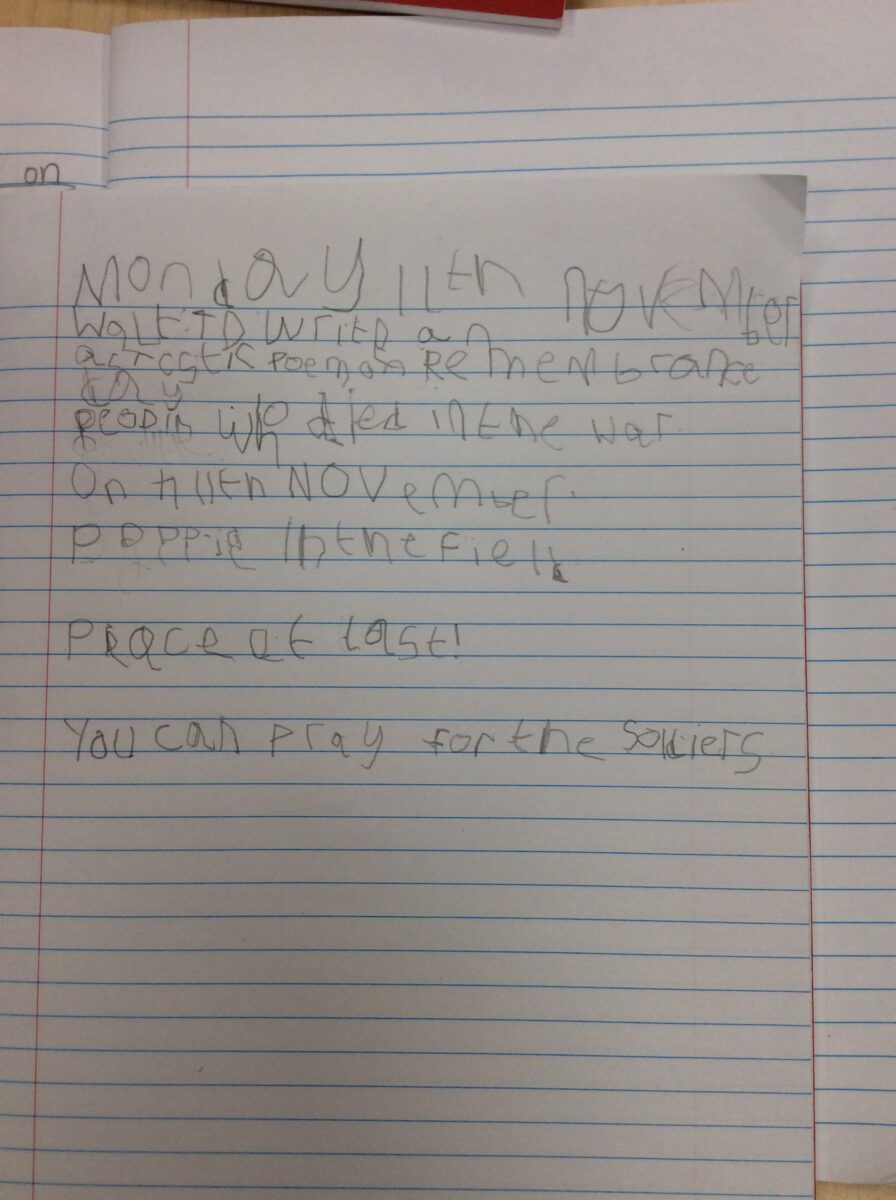 on
Monday 11th november
Walt: TO Write an
acrostic poem on Remembrance
day
people who died in the war
On 11th NOVember.
POPPie In the Field
Peace at last!
You can pray for the Soldiers